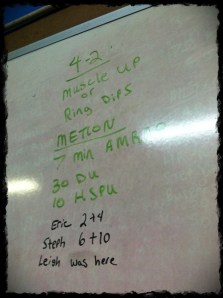 4-2
Muscle UP
or
Ring Dips
METCON
7 min AMRAP
30 DU
10 HSPU
Eric 2+4
Steph 6+10
Leigh was here